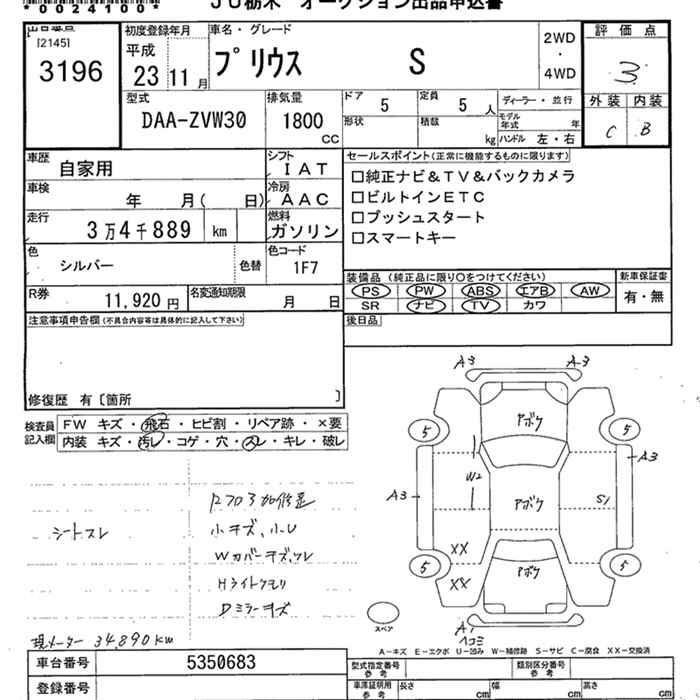 *00245100*
JU栃木 オークション出品申込書
出品番号
[2145]
3196
初度登録年月
平成
23 11 月
車名・グレード
プリウス S
2WD
・
4WD
評価点
3
外装 内装
C B
型式
DAA-ZVW30
排気量
1800
CC
ドア 5
定員 5 人
形状
積載 kg
ディーラー・並行
モデル年式 年
ハンドル 左・右
車歴 自家用
シフト
IAT
車検 年 月( 日)
冷房
AAC
走行 3万4千889 km
燃料
ガソリン
色 シルバー
色替
色コード
1F7
R券 11,920 円
名変通知期限 月 日
セールスポイント(正常に機能するものに限ります)
□純正ナビ&TV&バックカメラ
□ビルトインETC
□プッシュスタート
□スマートキー
装備品(純正品に限り○をつけてください)
PS PW ABS エアB AW
SR ナビ TV カワ
新車保証書
有・無
後日品
注意事項申告欄(不具合内容等は具体的に記入して下さい)
修復歴 有〔箇所 〕
検査員記入欄
FW キズ・飛石・ヒビ割・リペア跡・×要
内装 キズ・汚レ・コゲ・穴・スレ・キレ・破レ
シートスレ
小キズ、小U
Wカバーキズ、ワレ
Hライトクモリ
Dミラーキズ
現メーター 34,890km
A3 A3
アボケ
5 5
A3
W2
A3
アボケ
S1
XX
アボケ
5 5
XX
スペア
A1
ヘコミ
A-キズ E-エクボ U-凹み W-補修跡 S-サビ C-腐食 XX-交換済
車台番号 5350683
登録番号
型式指定番号 参考
類別区分番号 参考
車庫証明用 参考
長さ cm
幅 cm
高さ cm